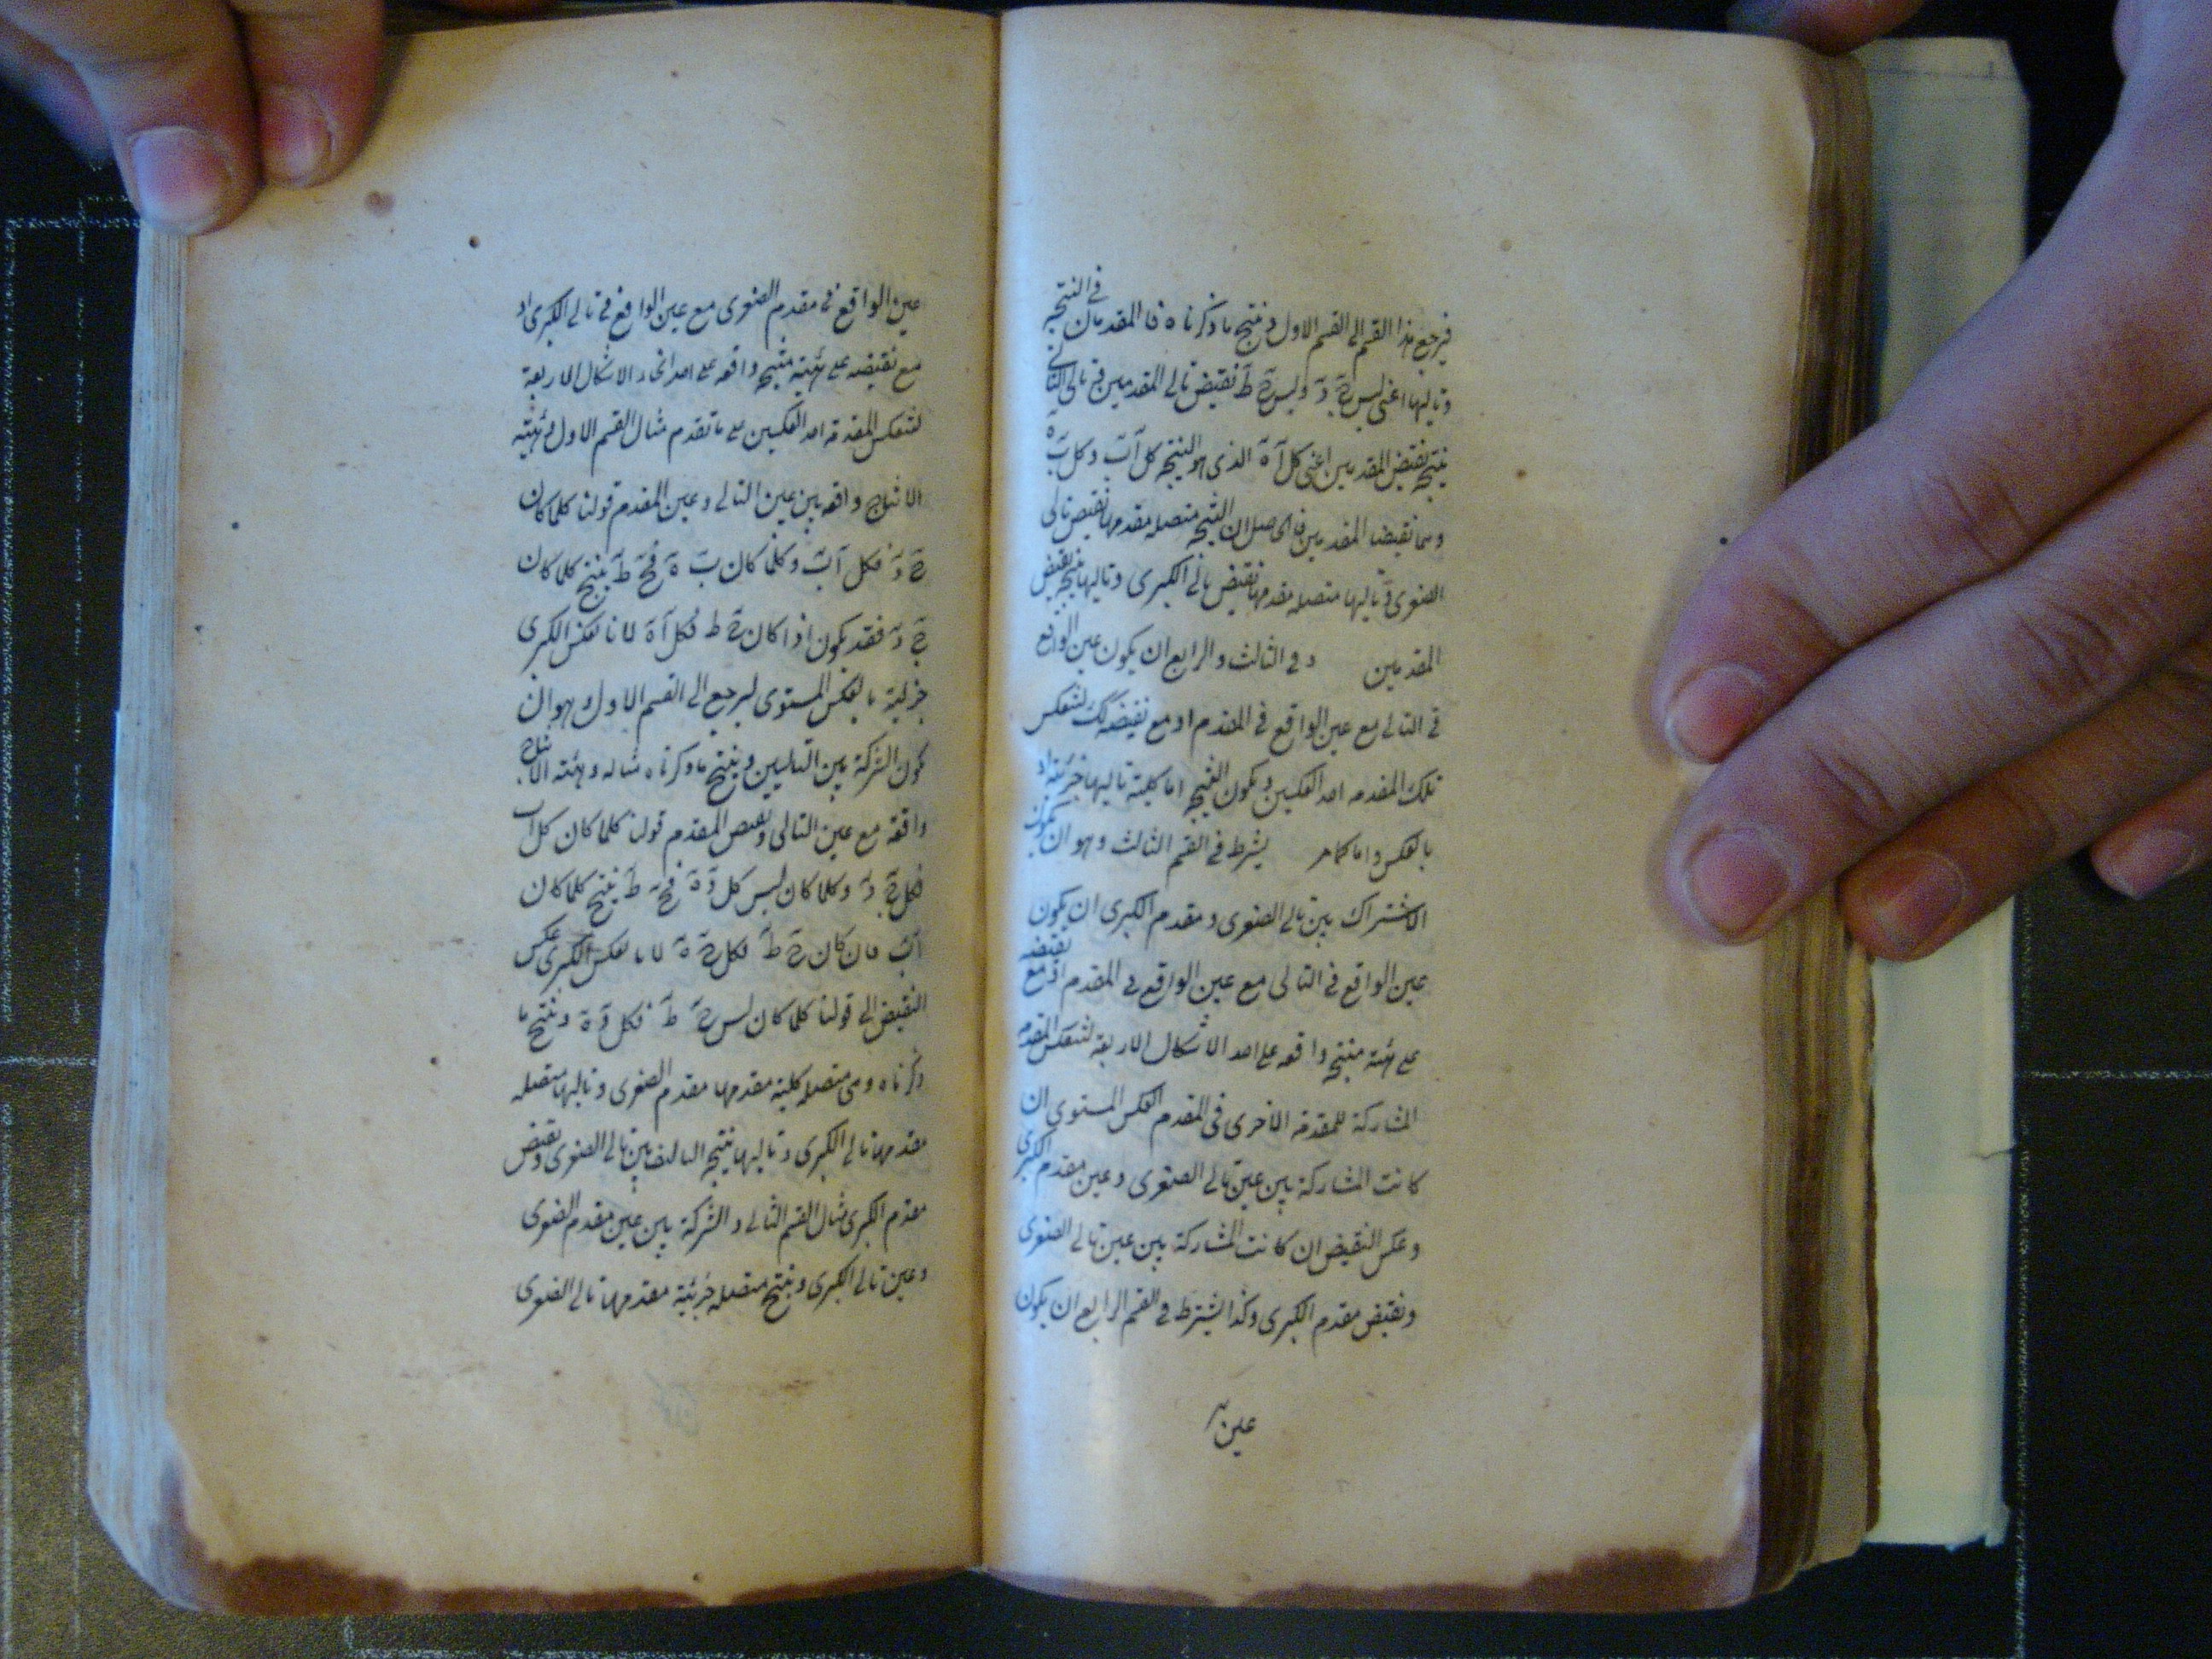 فيرجع هذا القسم الى القسم الاول و ينتج ما ذكرناه فالمقدمان فى النتيجة
و تاليها اعنى ليس ج د و ليس ح ط نقيض تالى المقدمتين فى تالى
ينتجه نقيض المقدمين اعنى كل ا ه الذى هو النتيجة كل اب و كل ب ه
و هما نقيضا المقدمين فالحاصل ان النتيجة متصلة مقدمها نقيض تالى
الصغرى و تاليها متصلة مقدمها نقيض تالى الكبرى و تاليها نتيجة نقيض
المقدمين و فى الثالث و الرابع ان يكون عين الواقع
فى التالى مع عين الواقع فى المقدم او مع نقيضه لتنعكس
تلك المقدمه احد العكسين و يكون النتيجة اما كلية تاليها جزئية او
بالعكس و اما كما مر يشترط فى القسم الثالث و هو ان يكون
الاشتراك بين تالى الصغرى و مقدم الكبرى ان يكون
عين الواقع فى التالى مع عين الواقع فى المقدم او مع نقيضه
على هئة منتجة واقعه على احد الاشكال الاربعة لتنعكس المقدمة
المشاركة للمقدمة الاخرى فى المقدم العكس المستوى ان
كانت المشاركة بين عين تالى الصغرى و عين مقدم الكبرى
و عكس النقيض ان كانت المشاركة بين عين تالى الصغرى
و نقيض مقدم الكبرى و كذا يشترط فى القسم الرابع ان يكون
عين
عين الواقع فى مقدم الصغرى مع عين الواقع فى تالى الكبرى او
مع نقيضه على هئية منتجه واقعه على احد الاشكال الاربعة
لتنعكس المقدمة احد العكسين على ما تقدم مثال القسم الاول و هئية
الانتاج واقعه بين عين التالى و عين المقدم قولنا كلما كان
ج د فكل اب و كلما كان ب ه فح ط ينتج كلما كان
ج د فقد يكون اذا كان ح ط فكل ا ه لانا نعكس الكبرى
جزئية بالعكس المستوى ليرجع الى القسم الاول و هو ان
يكون الشركة بين التاليين و ينتج ما ذكرناه مثاله و هئته الانتاج
واقعه مع عين التالى و نقيض المقدم قولنا كلما كان كل اب
فكل ج د و كلما كان ليس كل د ه فح ط ينتج كلما كان
اب فان كان ح ط فكل ج ه لانا نعكس الكبرى عكس
النقيض الى قولنا كلما كان ليس ح ط فكل د ه و ينتج ما
ذكرناه و هى متصله كلية مقدمها مقدم الصغرى و تاليها متصله
مقدمها تالى الكبرى و تاليها نتيجة التاليف بين تالى الصغرى و نقيض
مقدم الكبرى مثال القسم الثانى و الشركة بين عين مقدم الصغرى
و عين تالى الكبرى و ينتج متصله جزئية مقدمها تالى الصغرى